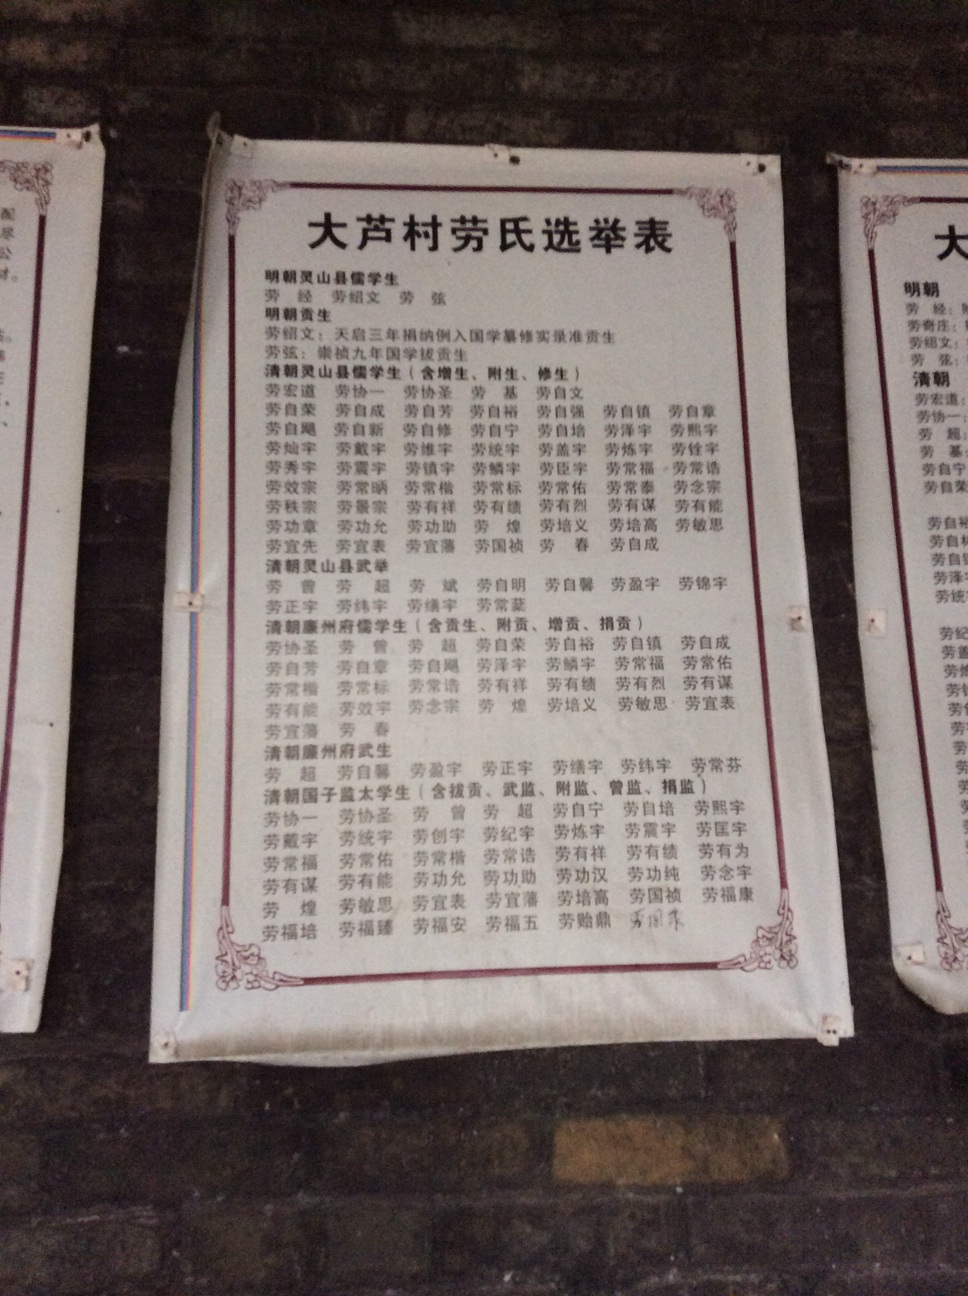 大芦村劳氏选举表
明朝灵山县儒学生
劳 经 劳绍文 劳 弦
明朝贡生
劳绍文：天启三年捐纳例入国学纂修实录准贡生
劳弦：崇祯九年国学拔贡生
清朝灵山县儒学生（含增生、附生、修生）
劳宏道 劳协一 劳协圣 劳 基 劳自文
劳自荣 劳自成 劳自芳 劳自裕 劳自强 劳自镇 劳自章
劳自飓 劳自新 劳自修 劳自宁 劳自培 劳泽宇 劳熙宇
劳灿宇 劳戴宇 劳维宇 劳统宇 劳盖宇 劳炼宇 劳铨宇
劳秀宇 劳震宇 劳镇宇 劳鳞宇 劳臣宇 劳常福 劳常诰
劳效宗 劳常昞 劳常楷 劳常标 劳常佑 劳常泰 劳念宗
劳秩宗 劳景宗 劳有祥 劳有绩 劳有烈 劳有谋 劳有能
劳功章 劳功允 劳功助 劳 煌 劳培义 劳培高 劳敏思
劳宜先 劳宜表 劳宜藩 劳国祯 劳 春 劳自成
清朝灵山县武举
劳 曾 劳 超 劳 斌 劳自明 劳自馨 劳盈宇 劳锦宇
劳正宇 劳纬宇 劳缮宇 劳常蕤
清朝廉州府儒学生（含贡生、附贡、增贡、捐贡）
劳协圣 劳 曾 劳 超 劳自荣 劳自裕 劳自镇 劳自成
劳自芳 劳自章 劳自飓 劳泽宇 劳鳞宇 劳常福 劳常佑
劳常楷 劳常标 劳常诰 劳有祥 劳有绩 劳有烈 劳有谋
劳有能 劳效宇 劳念宗 劳 煌 劳培义 劳敏思 劳宜表
劳宜藩 劳 春
清朝廉州府武生
劳 超 劳自馨 劳盈宇 劳正宇 劳缮宇 劳纬宇 劳常芬
清朝国子监太学生（含拔贡、武监、附监、曾监、捐监）
劳协一 劳协圣 劳 曾 劳 超 劳自宁 劳自培 劳熙宇
劳戴宇 劳统宇 劳创宇 劳纪宇 劳炼宇 劳震宇 劳匡宇
劳常福 劳常佑 劳常楷 劳常诰 劳有祥 劳有绩 劳有为
劳有谋 劳有能 劳功允 劳功助 劳功汉 劳功纯 劳念宇
劳 煌 劳敏思 劳宜表 劳宜藩 劳培高 劳国祯 劳福康
劳福培 劳福臻 劳福安 劳福五 劳贻鼎
大
明朝
劳 经：
劳奇庄：
劳绍文：
劳 弦：
清朝
劳宏道：
劳协一：
劳 超：
劳 基：
劳自宁
劳自荣
劳自裕